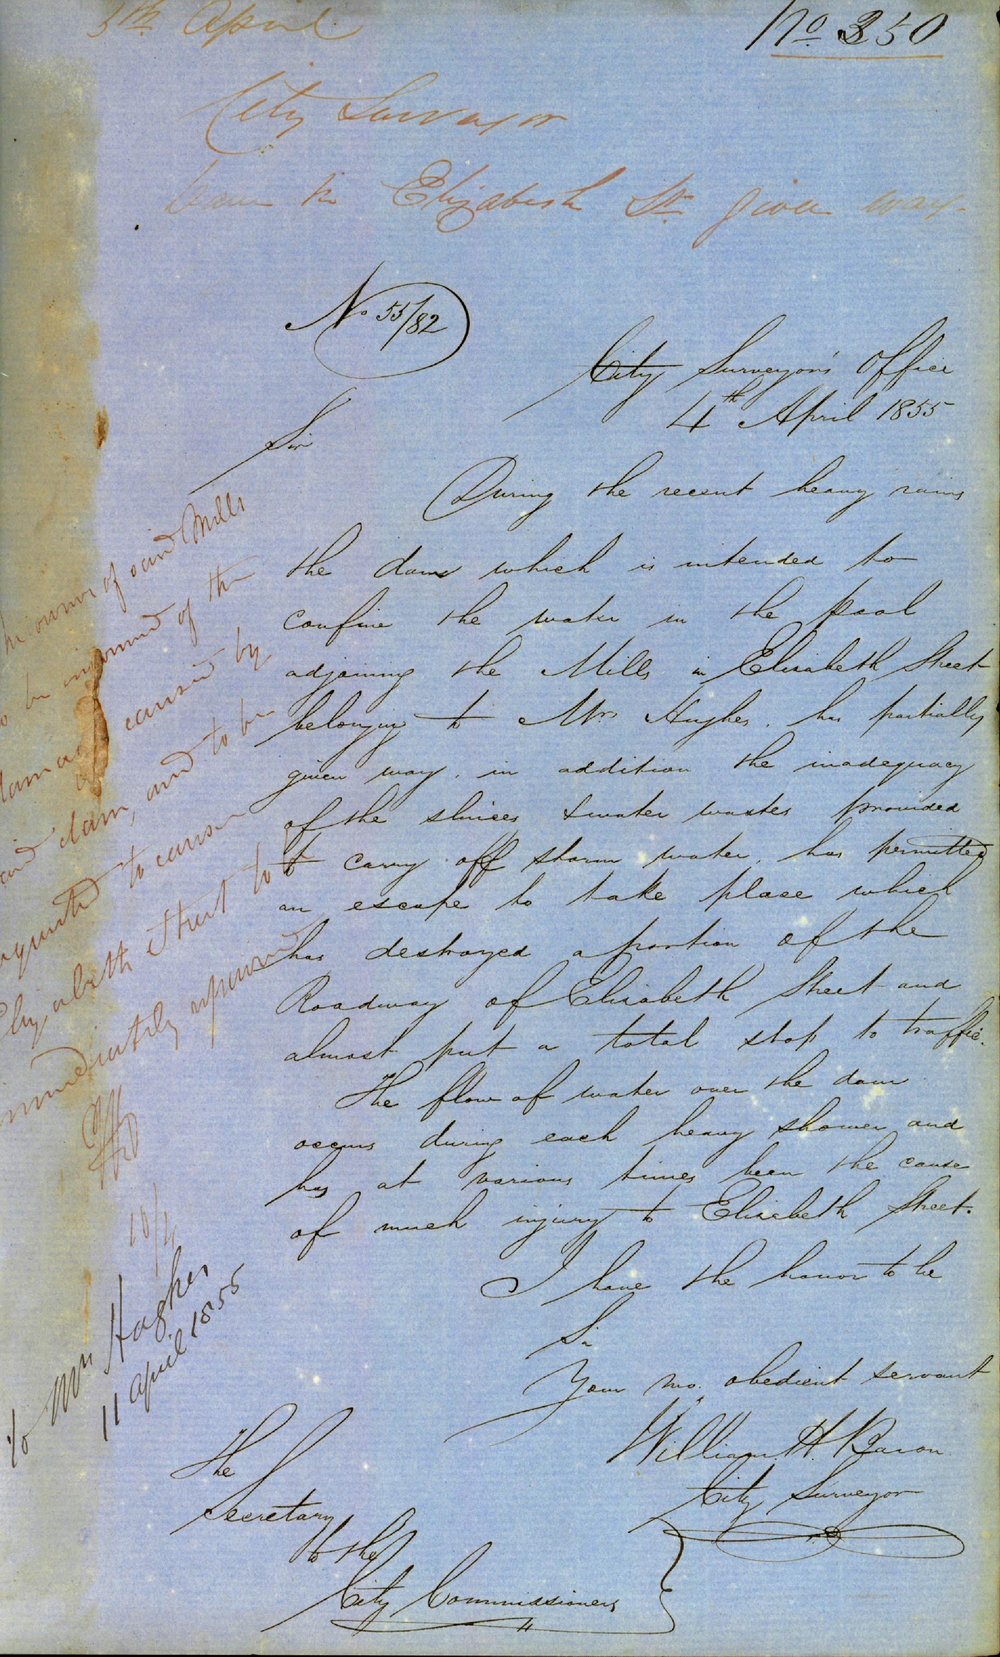 5th April
No 350
City Surveyor
Dam in Elizabeth St given way
No 55/82
City Surveyor's Office
4th April 1855
Sir
During the recent heavy rains
the dam which is intended to
confine the water in the pool
adjoining the Mills in Elizabeth Street
belonging to Mrs Hughes, has partially
given way, in addition the inadequacy
of the sluices & water wastes provided
to carry off storm water, has permitted
an escape to take place which
has destroyed a portion of the
Roadway of Elizabeth Street and
almost put a total stop to traffic.
The flow of water over the dam
occurs during each heavy shower and
has at various times been the cause
of much injury to Elizabeth Street.
I have the honor to be
Sir
Your mo. obedient servant
William H. Baron
City Surveyor
The
Secretary
to the
City Commissioners
The owner of said Mills
to be informed of the
damage caused by
said dam, and to be
requested to cause
Elizabeth Street to be
immediately repaired
10/4
To Mrs Hughes
11 April 1855